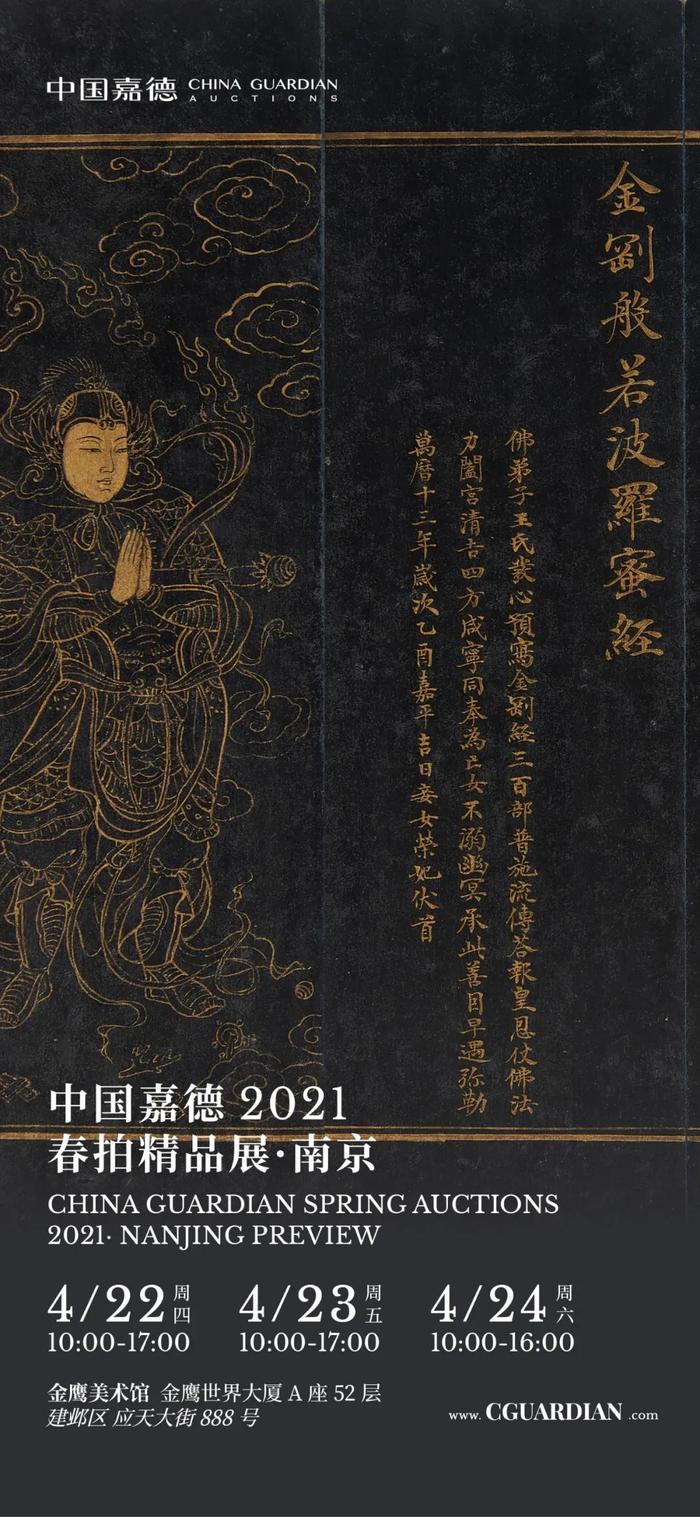 中国嘉德 CHINA GUARDIAN
AUCTIONS
金剛般若波羅蜜経
佛弟子王氏發心預寫金剛経三百部普施流傳荅報皇恩仗佛法
力闔宮清吉四方咸寧同奉為亡女不溺幽冥承此善因早遇弥勒
萬曆十三年歲次乙酉嘉平吉日妾女榮妃伏首
中国嘉德 2021
春拍精品展·南京
CHINA GUARDIAN SPRING AUCTIONS
2021· NANJING PREVIEW
4/22 周四 4/23 周五 4/24 周六
10:00-17:00 10:00-17:00 10:00-16:00
金鹰美术馆 金鹰世界大厦 A 座 52 层
建邺区 应天大街 888 号
www. CGUARDIAN .com